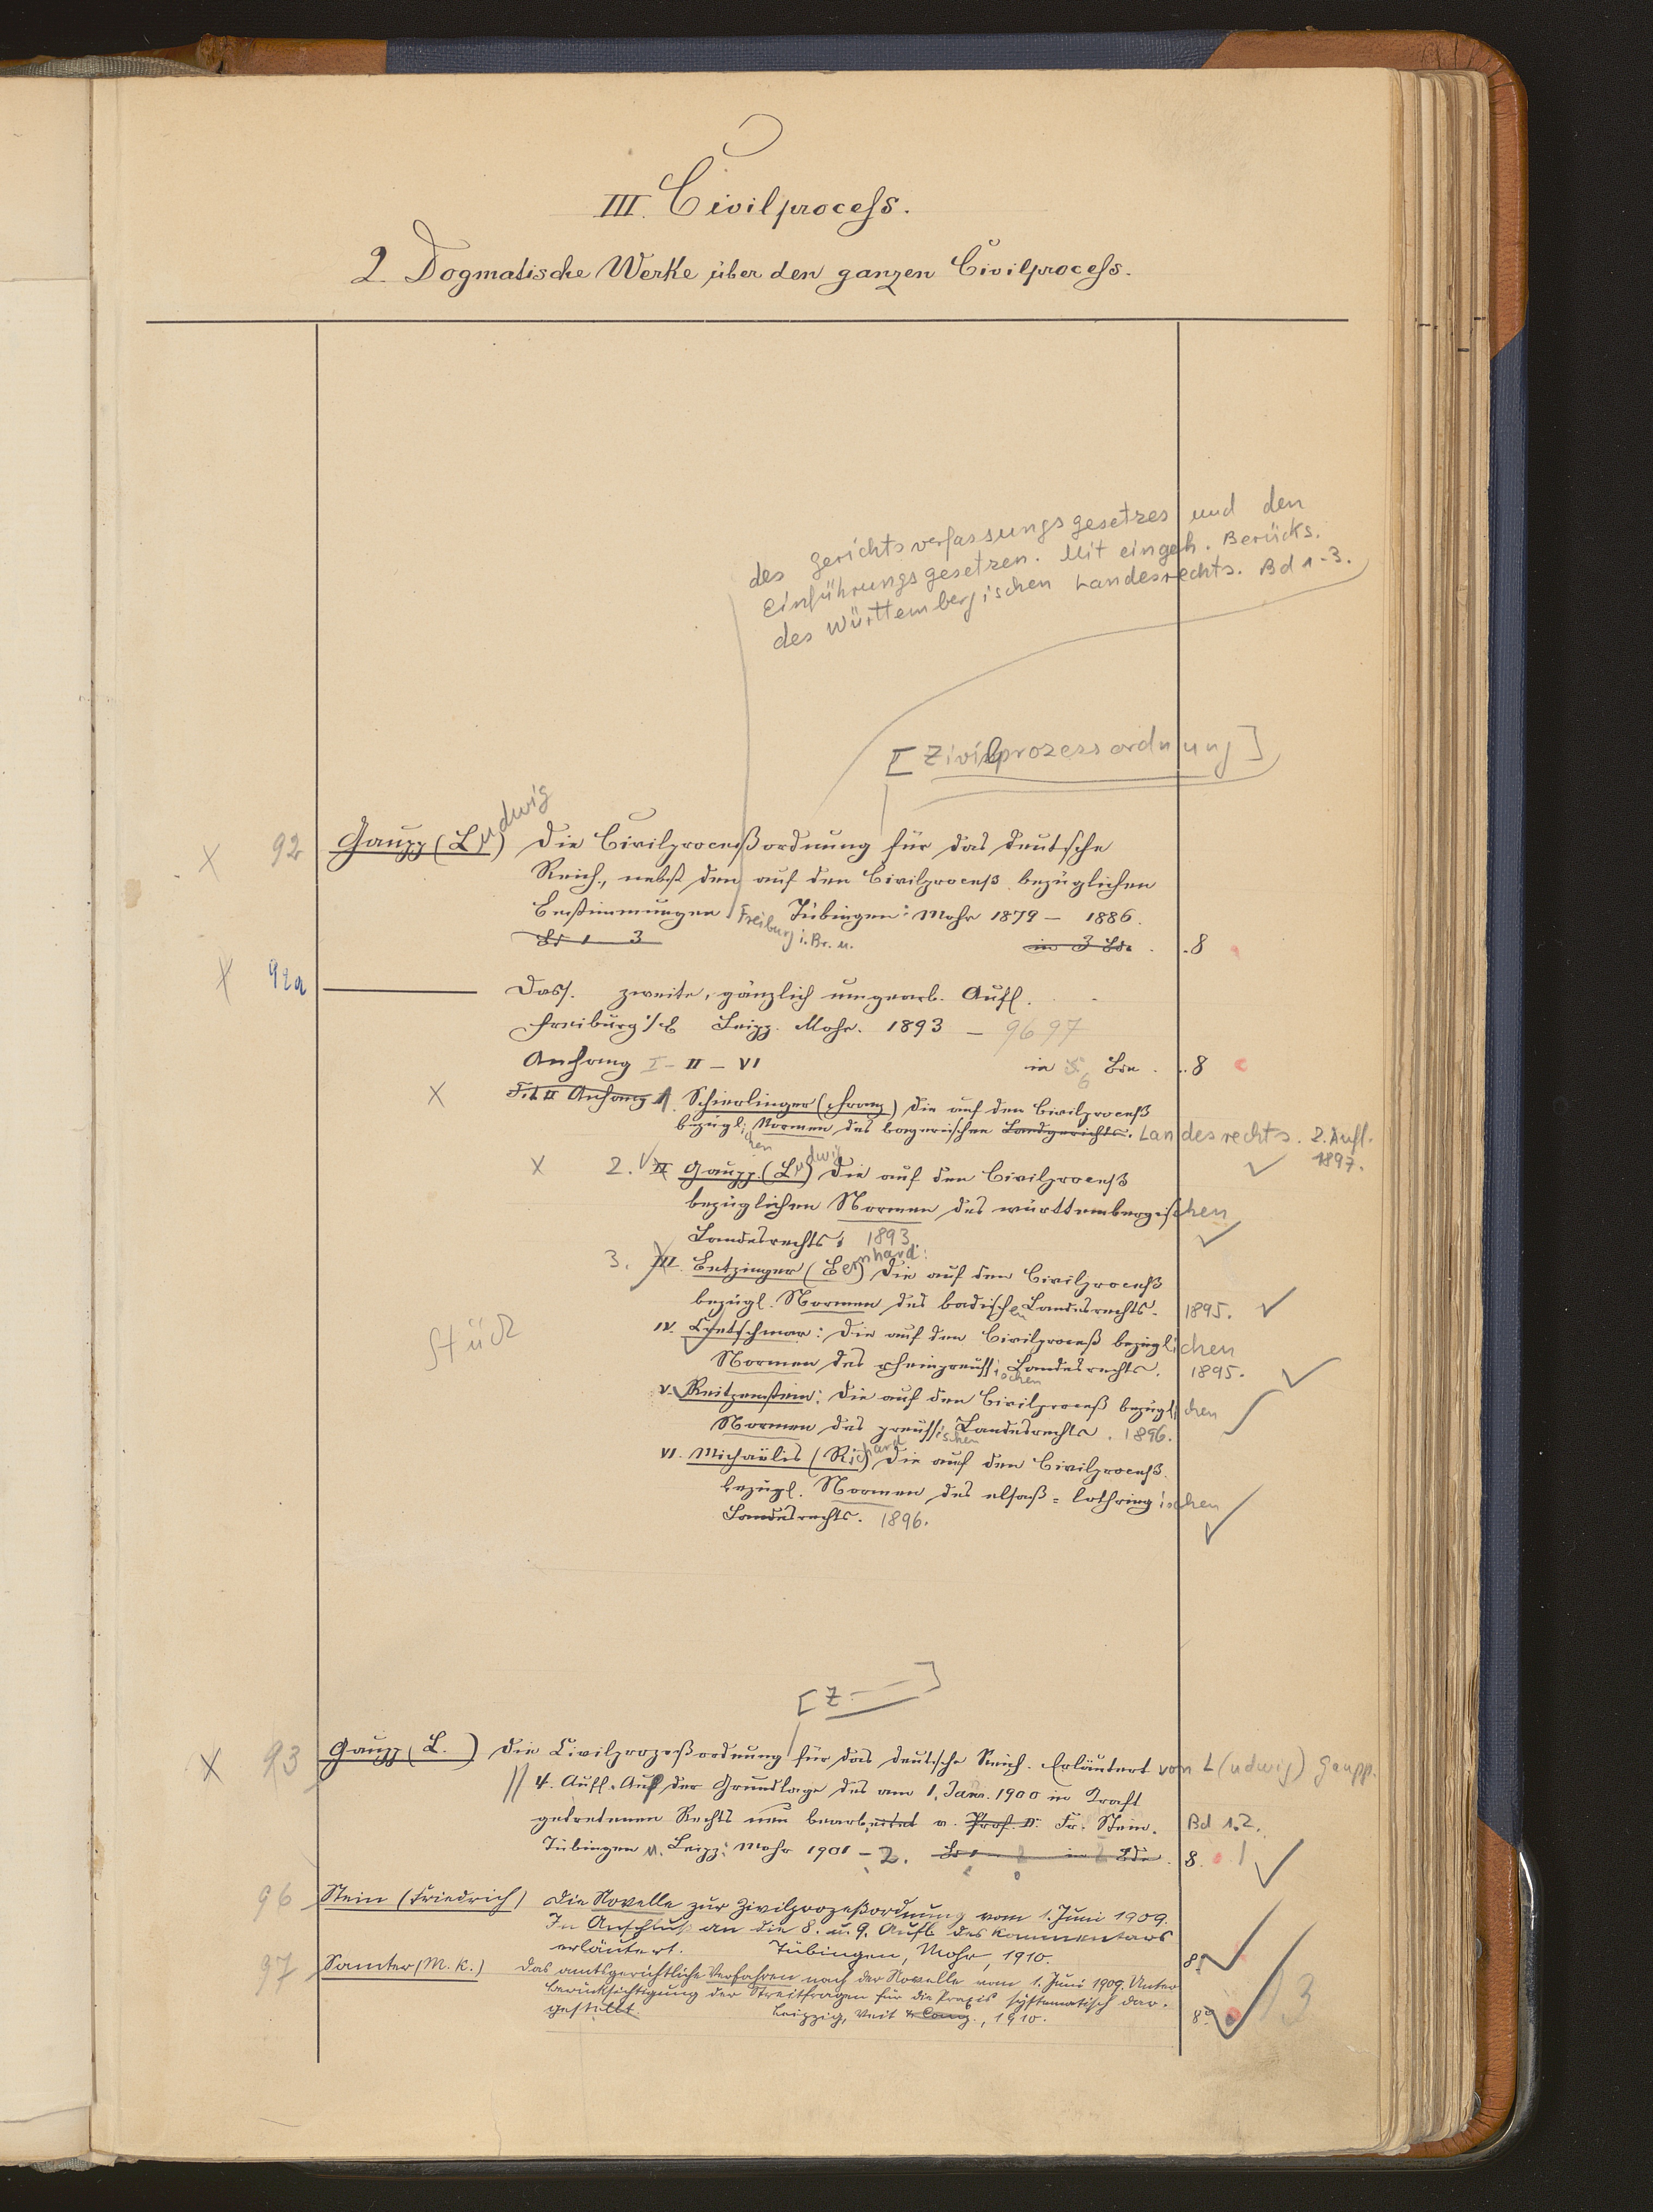 III. Civilprocess.
2. Dogmatische Werke über den ganzen Civilprocess.
des Gerichtsverfassungsgesetzes und den
Einführungsgesetzen. Mit eingeh. Berücks.
des Württembergischen Landesrechts. Bd 1-3.
[Zivilprozessordnung]
x 92 Gaupp (Ludwig) Die Civilproceßordnung für das deutsche
Reich, nebst den auf den Civilproceß bezüglichen
Bestimmungen Freiburg i. Br. u. Tübingen: Mohr 1879 – 1886.
Bd 1 3 in 3 Bdn. 8
x 92a ——— Dass. zweite, gänzlich umgearb. Aufl.
Freiburg i/B Leipz. Mohr. 1893 – 96 97
Anhang I – II – VI in 6 Bdn. 8
x Tit II Anhang 1. Schierlinger (Franz) Die auf den Civilproceß
bezüglichen Normen des bayerischen Landgerichts. Landesrechts. 2. Aufl.
1897.
x 2. II Gaupp (Ludwig) Die auf den Civilproceß
bezüglichen Normen des württembergischen
Landesrechts; 1893.
3. III. Betzinger (Bernhard): Die auf den Civilproceß
bezügl. Normen des badischen Landesrechts. 1895.
Stück
IV. Cretschmar: Die auf den Civilproceß bezüglichen
Normen des rheinpreussischen Landesrechts. 1895.
V. Reitzenstein: Die auf den Civilproceß bezüglichen
Normen des preussischen Landesrechts. 1896.
VI. Michaëlis (Richard) Die auf den Civilproceß
bezügl. Normen des elsaß-lothringischen
Landesrechts. 1896.
[Z—]
x 93 Gaupp (L.) Die Civilprozeßordnung für das deutsche Reich. Erläutert von L(udwig) Gaupp.
4. Aufl. Auf der Grundlage des am 1. Jan. 1900 in Kraft
getretenen Rechts neu bearbeitet v. Prof. Dr. Fr. Stein. Bd 1.2.
Tübingen u. Leipz: Mohr 1901 – 2. Bd 1 – 2 in 2 Bdn. 8. 1
96 Stein (Friedrich) Die Novelle zur Zivilprozeßordnung vom 1. Juni 1909.
Im Anschluß an die 8. u. 9. Aufl. des Kommentars
erläutert. Tübingen, Mohr, 1910. 8°
97 Samter (M. K.) Das amtsgerichtliche Verfahren nach der Novelle vom 1. Juni 1909. Unter
Berücksichtigung der Streitfragen für die Praxis systematisch dar-
gestellt. Leipzig, Veit & Comp., 1910. 8° 13